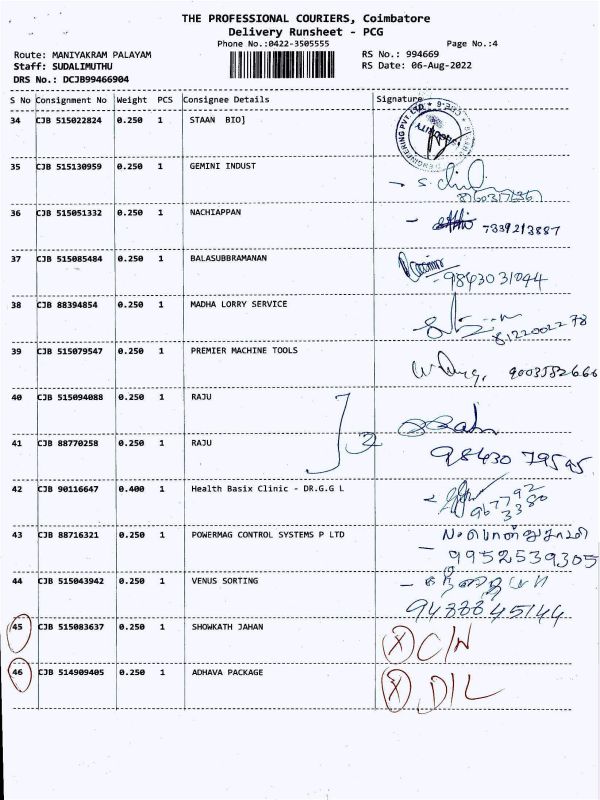 THE PROFESSIONAL COURIERS, Coimbatore
Delivery Runsheet - PCG
Phone No.:0422-3505555 Page No.:4
Route: MANIYAKRAM PALAYAM RS No.: 994669
Staff: SUDALIMUTHU RS Date: 06-Aug-2022
DRS No.: DCJB99466904
S No Consignment No Weight PCS Consignee Details Signature
34 CJB 515022824 0.250 1 STAAN BIO]
35 CJB 515130959 0.250 1 GEMINI INDUST
36 CJB 515051332 0.250 1 NACHIAPPAN
7339213887
37 CJB 515085484 0.250 1 BALASUBBRAMANAN
9843031044
38 CJB 88394854 0.250 1 MADHA LORRY SERVICE
8122002278
39 CJB 515079547 0.250 1 PREMIER MACHINE TOOLS
9003582666
40 CJB 515094088 0.250 1 RAJU
2
41 CJB 88770258 0.250 1 RAJU
98430 79595
42 CJB 90116647 0.400 1 Health Basix Clinic - DR.G.G L
43 CJB 88716321 0.250 1 POWERMAG CONTROL SYSTEMS P LTD
9952539305
44 CJB 515043942 0.250 1 VENUS SORTING
9488845144
45 CJB 515083637 0.250 1 SHOWKATH JAHAN X C/N
46 CJB 514909405 0.250 1 ADHAVA PACKAGE X D/L